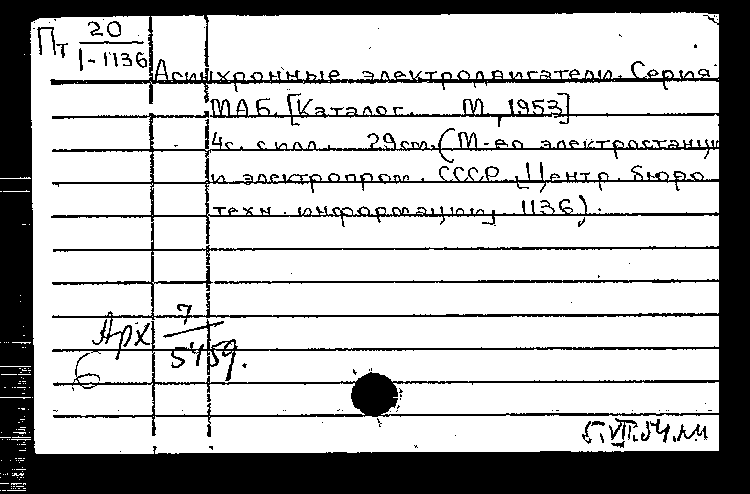 Пт 20
1-1136
Асинхронные электродвигатели. Серия
МАБ. [Каталог. М., 1953]
4с. с илл. 29см. (М-во электростанц
и электропром. СССР. Центр. бюро
техн. информации, 1136).
Арх 7
5459.
б
5.VII.54.